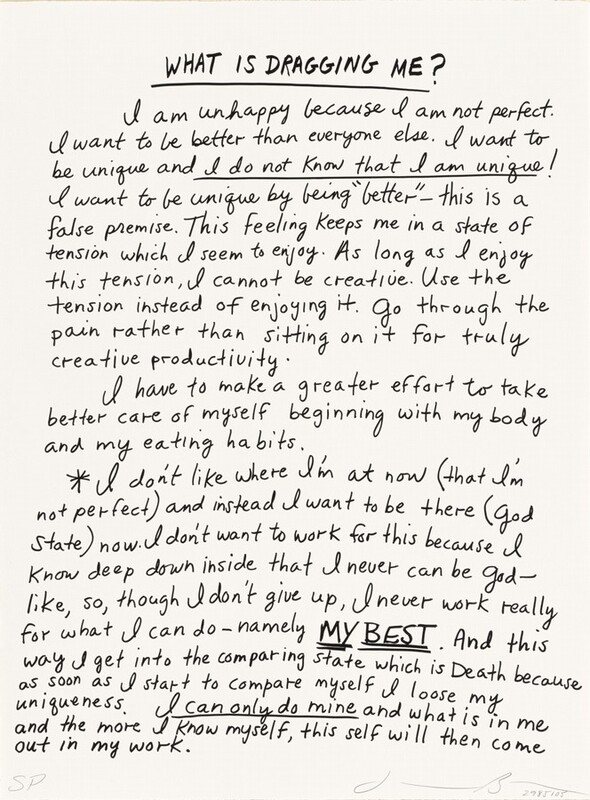 WHAT IS DRAGGING ME?
I am unhappy because I am not perfect.
I want to be better than everyone else. I want to
be unique and I do not know that I am unique!
I want to be unique by being "better" - this is a
false premise. This feeling keeps me in a state of
tension which I seem to enjoy. As long as I enjoy
this tension, I cannot be creative. Use the
tension instead of enjoying it. Go through the
pain rather than sitting on it for truly
creative productivity.
I have to make a greater effort to take
better care of myself beginning with my body
and my eating habits.
* I don't like where I'm at now (that I'm
not perfect) and instead I want to be there (God
state) now. I don't want to work for this because I
know deep down inside that I never can be God-
like, so, though I don't give up, I never work really
for what I can do - namely MY BEST. And this
way I get into the comparing state which is Death because
as soon as I start to compare myself I loose my
uniqueness. I can only do mine and what is in me
and the more I know myself, this self will then come
out in my work.
SP